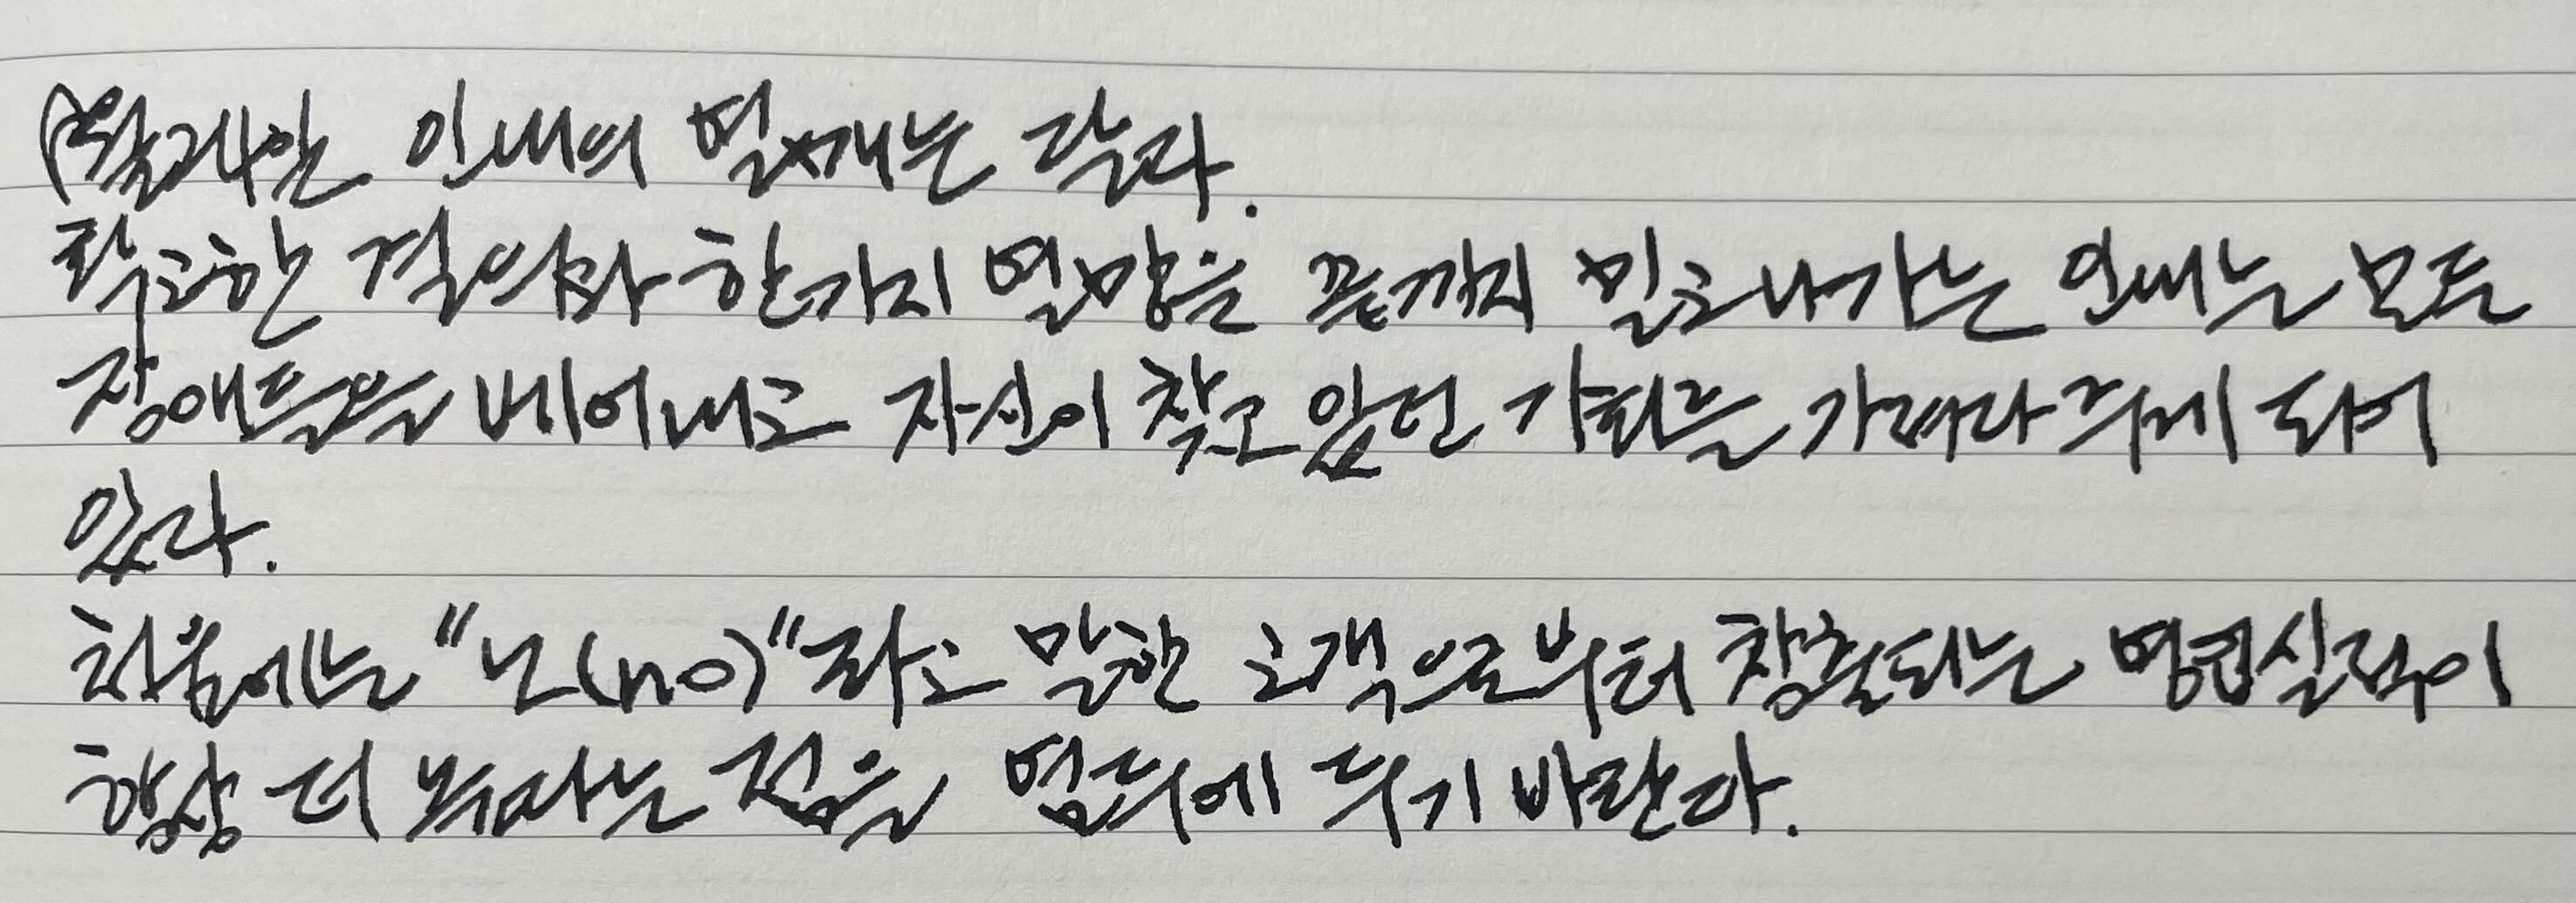 인내의 열매는 달다.
확고한 결의와 한가지 열망을 끝까지 밀고나가는 인내는 모든
장애들을 베어내고 자신이 찾고 있던 기회를 가져다 주게 되어
있다.
처음에는 "노(no)"라고 말한 고객으로부터 창출되는 영업실적이
항상 더 높다는 점을 염두에 두기 바란다.